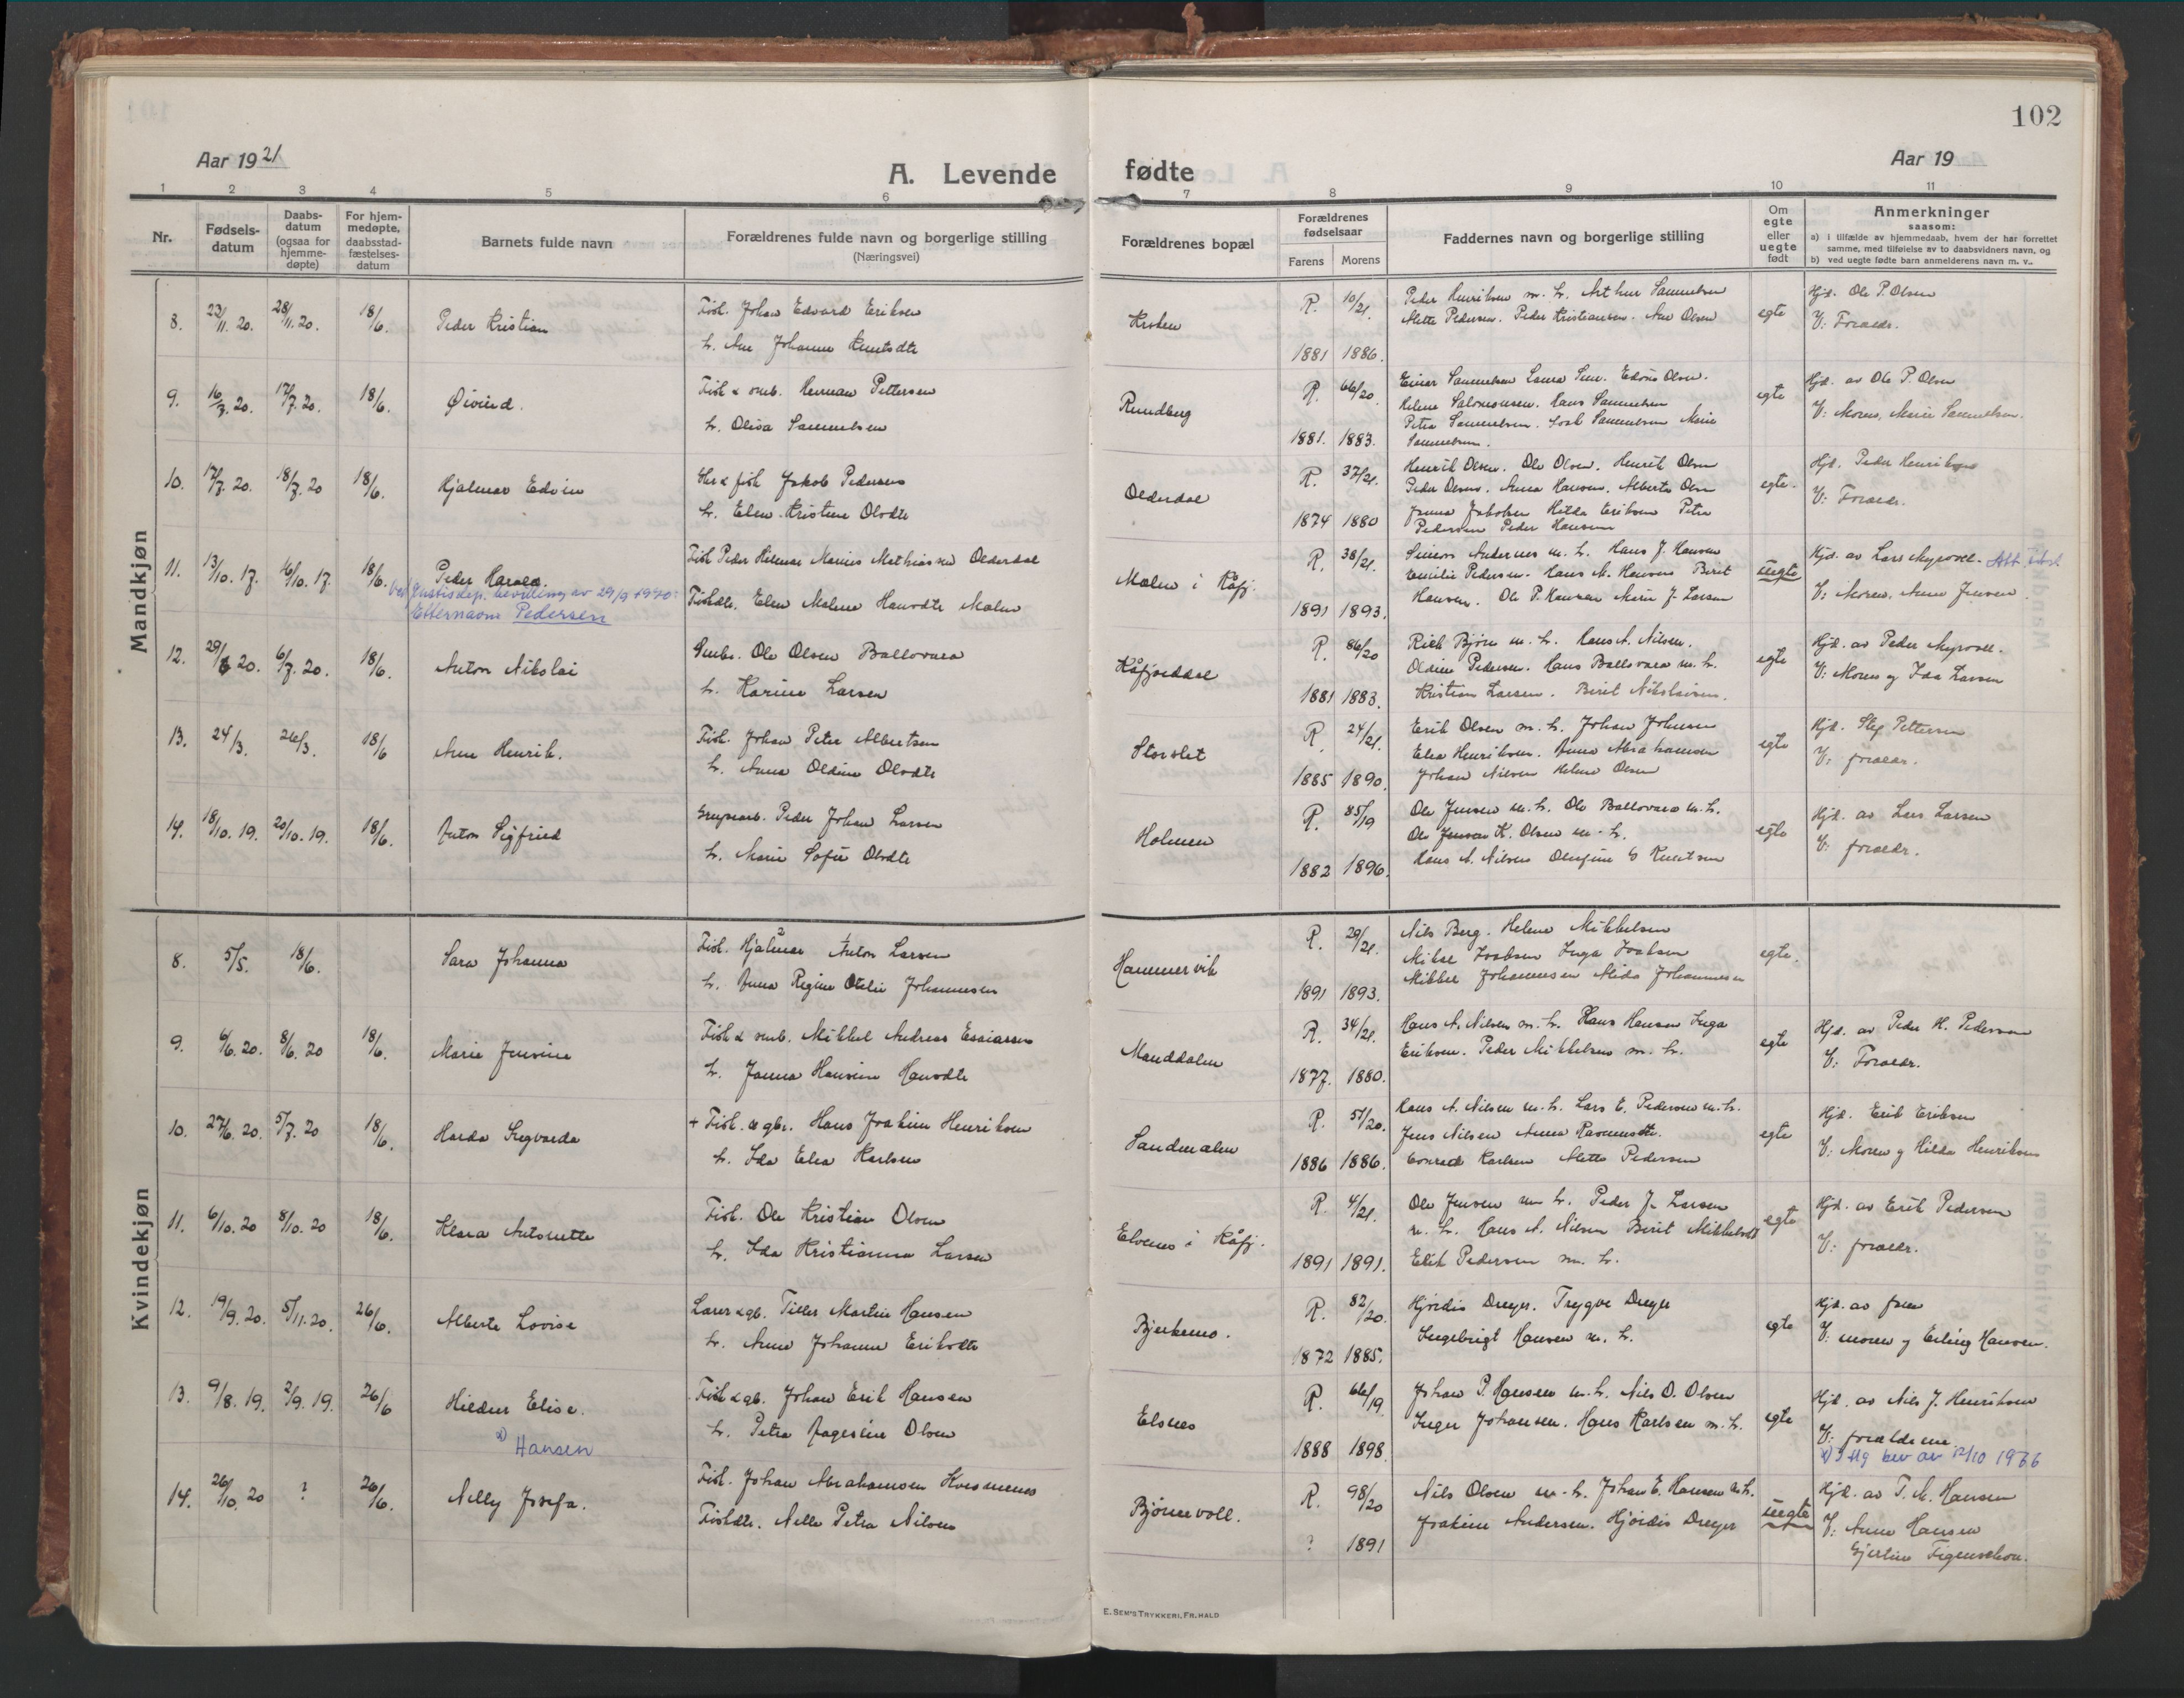 102
Aar 1921
A. Levende fødte
Aar 19
1 2 3 4 5 6 7 8 9 10 11
Nr.
Fødsels-
datum
Daabs-
datum
(ogsaa for
hjemme-
døpte)
For hjem-
medøpte,
daabsstad-
fæstelses-
datum
Barnets fulde navn
Forældrenes fulde navn og borgerlige stilling
(Næringsvei)
Forældrenes bopæl
Forældrenes
fødselsaar
Farens Morens
Faddernes navn og borgerlige stilling
Om
egte
eller
uegte
født
Anmerkninger
saasom:
a) i tilfælde av hjemmedaab, hvem der har forrettet
samme, med tilføielse av to daabsvidners navn, og
b) ved uegte fødte barn anmelderens navn m. v..
Mandkjøn
8. 22/11. 20. 28/11. 20. 18/6. Peder Kristian
Fisk. Johan Edvard Eriksen
h. Ane Johanne Knutsdtr
R. 10/21.
1881 1886.
Peder Henriksen m. h. Arthur Samuelsen
Mette Pedersen. Peder Kristiansen. Ane Olsen
egte
Hjd. Ole P. Olsen
V: Foraeldr.
9. 16/7. 20. 17/7. 20. 18/6. Øivind.
Fisk & smb. Herman Pettersen
h. Oliva Samuelsen
Rundberg
R. 66/20.
1881. 1883.
Einar Samuelsen Laura Sam. Edvin Olsen.
Helene Salomonsen. Hans Samuelsen
Petra Samuelsen. Samuelsen Marie
Samuelsen.
egte
Hjd. av Ole P. Olsen
V: Moren, Marie Samuelsen.
10. 17/7. 20. 18/7. 20 18/6. Hjalmar Edvin
Gbr & fisk Jakob Pedersen
h. Elen Kristine Olsdtr
Olderdal
R. 37/21.
1874 1880
Henrik Olsen. Ole Olsen. Henrik Olsen
Peder Olsen. Anna Hansen. Alberta Olsen
Jakobsen Hilda Eriksen Petra
Pedersen Peder Hansen
egte.
Hjd. Peder Henriksen
V: Foraeldr.
11. 13/10. 17. 16/10. 17. 18/6. Peder Harald.
Ved Justisdep. bevilling av 29/9 1970:
Etternavn Pedersen
Fisk Peder Hilmar Marius Mathiassen Olderdal
Fiskdtr. Elen Malene Hansdtr Malen
Malen i Kåfj.
R. 38/21.
1891 1893.
Simon Andersen m. h. Hans J. Hansen
Emilie Pedersen. Hans M. Hansen Berit
Hansen. Ole P. Hansen Marie J. Larsen
uegte
Hjd. av Lars Myrvoll.
V: Moren, Anne Jensen.
12. 29/6 20. 6/7. 20. 18/6. Anton Nikolai
Smbr. Ole Olsen Ballovara
h. Karine Larsen
Kåfjorddal
R. 86/20
1881 1883.
Rich Bjørn m. h. Hans A. Nilsen.
Oldine Pedersen. Hans Ballovara m. h.
Kristian Larsen. Berit Nikolaisen.
egte
Hjd. av Peder Myrvoll.
V: Moren og Ida Larsen
13. 24/3. 26/3. 18/6 Arne Henrik.
Fisk. Johan Peter Albertsen
h. Anna Oldine Olsdtr
Storslet
R. 24/21.
1885 1890.
Erik Olsen m. h. Johan Johnsen
Elea Henriksen. Anna Abrahamsen
Johan Nilsen Helene Olsen
egte
Hjd. Pettersen
V: foraeldr.
14. 18/10. 19. 20/10. 19. 18/6. Anton Sigfried
Grupearb. Peder Johan Larsen
h. Marie Sofie Olsdtr
Holmen
R. 85/19
1882 1896.
Ole Jensen m. h. Ole Ballovara m. h.
Ole K. Olsen m. h.
Hans A. Nilsen Knutsen
egte
Hjd. av Lars Larsen
V: foraeldr.
Kvindekjøn
8. 5/5. 18/6. Sara Johanna
Fisk. Hjalmar Anton Larsen
h. Anna Regine Otelie Johannesen
Hammervik
R. 29/21.
1891 1893.
Nils Berg. Helene Mikkelsen
Mikal Isaksen Inga Isaksen
Mikkel Johannesen Alida Johannesen
egte.
9. 6/6. 20. 8/6. 20 18/6. Marie Jensine
Fisk & smb. Mikkel Andreas Esaiassen
h. Janna Hansine Hansdtr
Manddalen
R. 34/21.
1877. 1880.
Hans A. Nilsen m. h. Hans Hansen Inga
Eriksen. Peder Mikkelsen m. h.
egte
Hjd. av Peder H. Pedersen
V: Foraeldr.
10. 27/6. 20. 5/7. 20 18/6. Harda Ingvarda
+ Fisk. & gbr. Hans Joakim Henriksen
h. Ida Elea Karlsen
Sandmalen
R. 51/20.
1886 1886.
Hans A. Nilsen m. h. Lars E. Pedersen m. h.
Jens Nilsen Anna Rasmusdtr.
Conrad Karlsen Mette Pedersen
egte
Hjd. Erik Eriksen
V: Moren og Hilda Henriksen
11. 6/10. 20 8/10. 20 18/6. Klara Antonette
Fisk. Ole Kristian Olsen
h. Ida Kristianna Larsen
Elvenes i Kåfj.
R. 4/21.
1891 1891.
Ole Jensen m. h. Peder J. Larsen
m. h. Hans A. Nilsen Berit Mikkelsdtr
Erik Pedersen m. h.
egte
Hjd. av Erik Pedersen
V: foraeldr.
12. 19/9. 20. 5/11. 20. 26/6. Alberte Lovise
Lærer & gb. Tiller Martin Hansen
h. Anne Johanne Eriksdtr
Bjerkemo.
R. 82/20.
1872 1885.
Hjørdis Dreyer. Trygve Dreyer
Ingebrigt Hansen m. h.
egte
Hjd. av faren
V: moren og Erling Hansen.
13. 9/8. 19. 2/9. 19. 26/6 Hildur Elise.
x) Hansen
Fisk & gb. Johan Erik Hansen
h. Petra Aagesine Olsen
Elsnes
R. 66/19.
1888 1898.
Johan P. Hansen m. h. Nils O. Olsen
Inger Johansen. Hans Karlsen m. h.
egte
Hjd. av Nils J. Henriksen
V: foraeldrene
x) bev av 12/10 1966
14. 26/10. 20 ? 26/6. Nelly Josefa.
Fisk. Johan Abrahamsen Kvesmenes
Fiskdtr. Nelle Petra Nilsen
Bjørnevoll.
R. 98/20
? 1891
Nils Olsen m. h. Johan E. Hansen m. h.
Joakim Andersen. Hjørdis Dreyer
uegte
Hjd. av T. M. Hansen
V: Anne Hansen
Gjertine Figenschou.
E. SEM'S TRYKKERI, FR. HALD